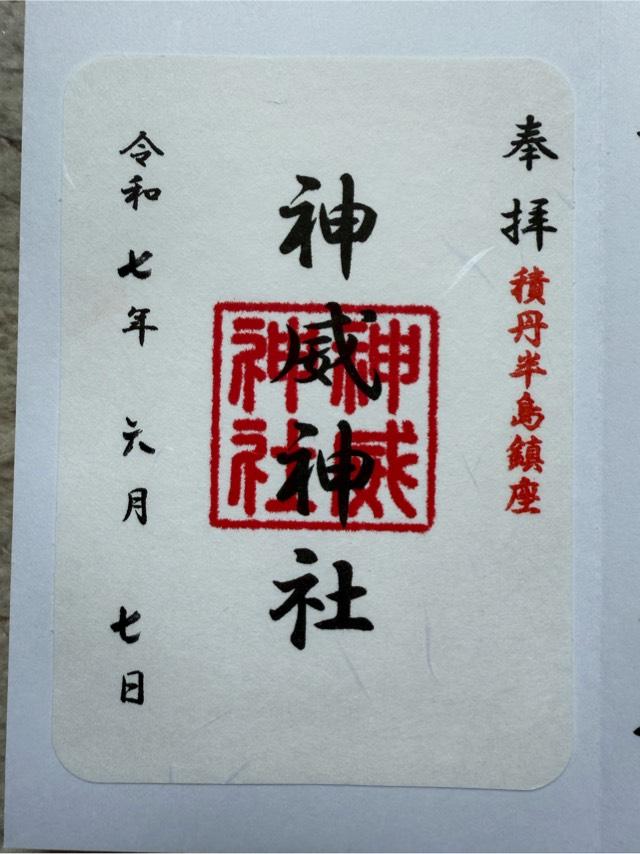 奉拝
積丹半島鎮座
神威神社
神威
神社
令和七年 六月 七日